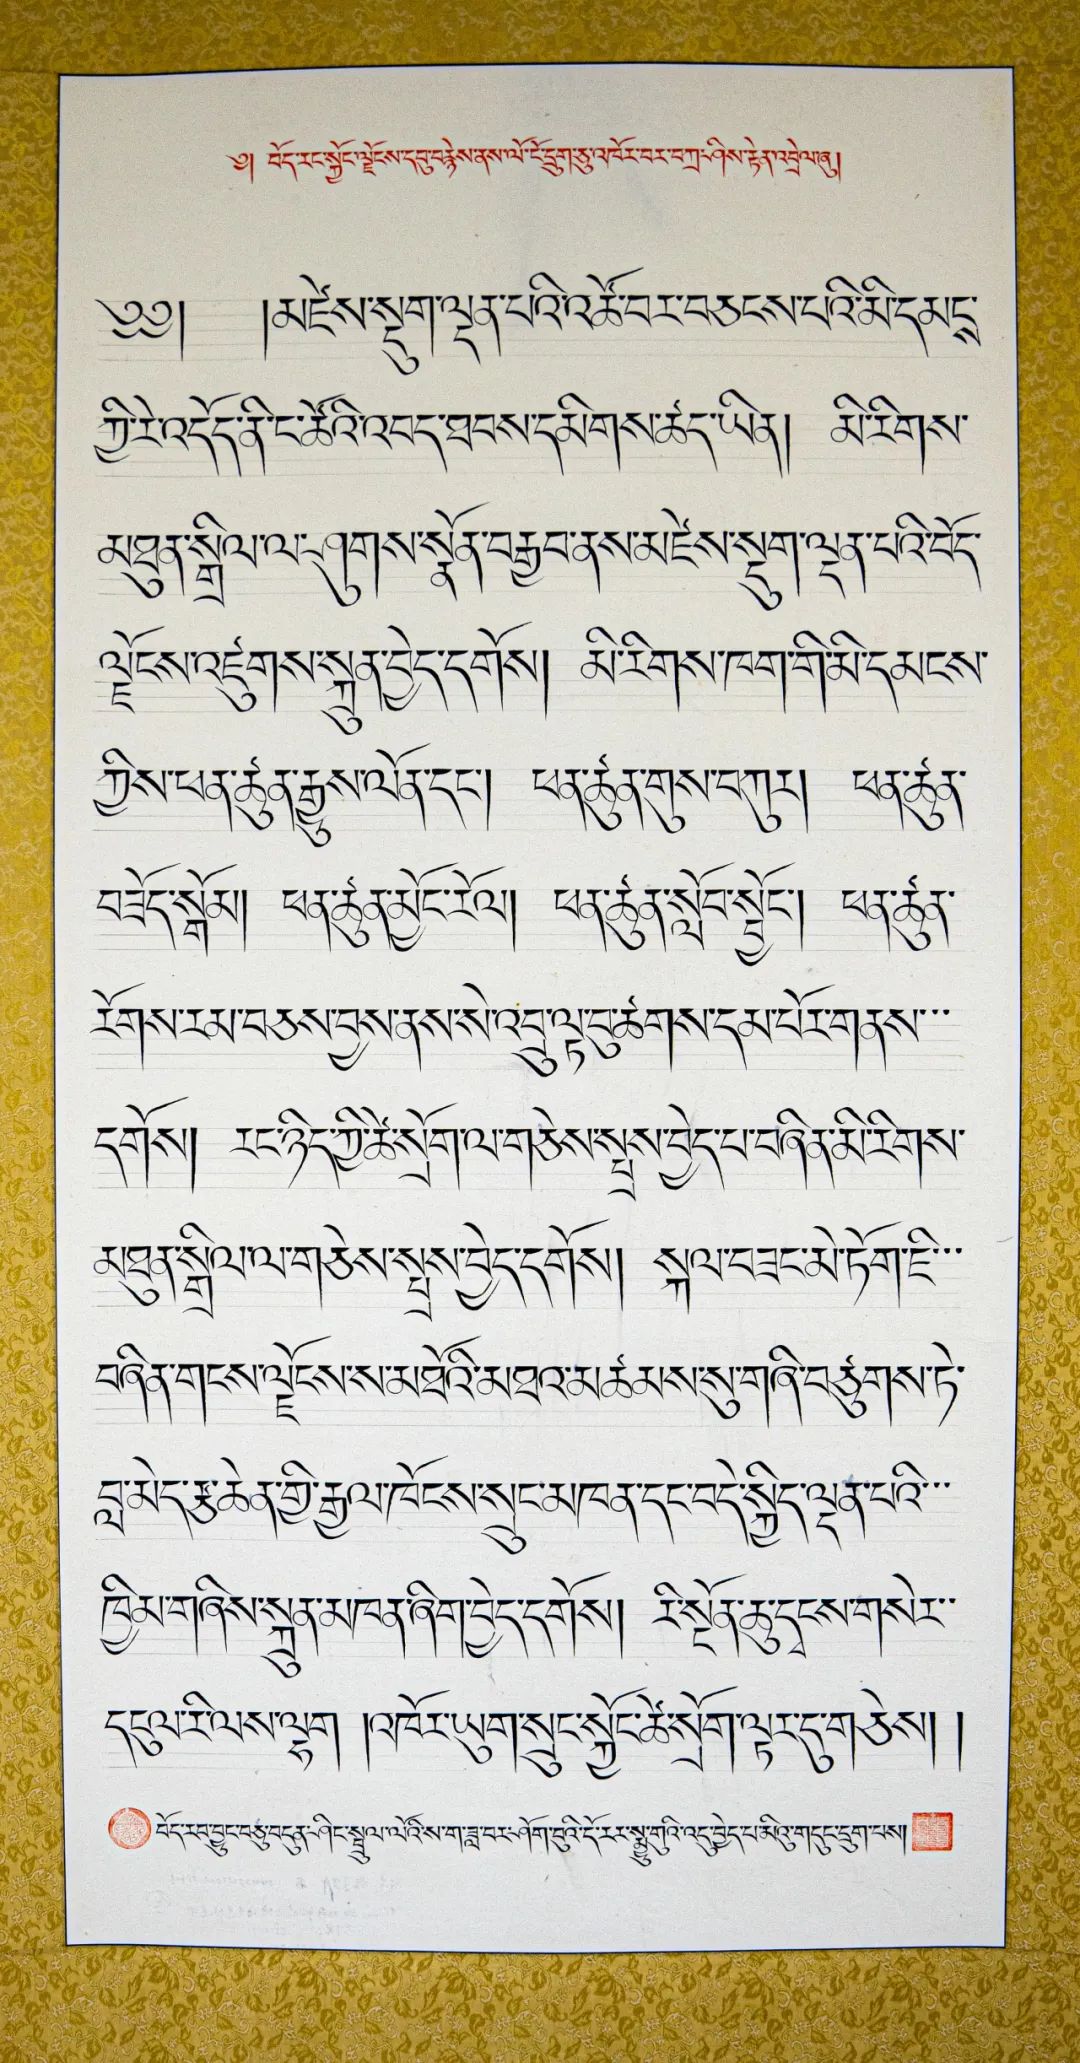 ༄། བོད་རང་སྐྱོང་ལྗོངས་དབུ་བརྙེས་ནས་ལོ་ངོ་དྲུག་ཅུ་འཁོར་བར་བཀྲ་ཤིས་རྟེན་འབྲེལ་ཞུ།
༄༅། །མཛེས་སྡུག་ལྡན་པའི་འཚོ་བར་བཅངས་པའི་མི་དམངས
ཀྱི་རེ་འདོད་ནི་ང་ཚོའི་འབད་ཐབས་དམིགས་ཚད་ཡིན། མི་རིགས་
མཐུན་སྒྲིལ་ལ་ཤུགས་སྣོན་བརྒྱབ་ནས་མཛེས་སྡུག་ལྡན་པའི་བོད་
ལྗོངས་འཛུགས་སྐྲུན་བྱེད་དགོས། མི་རིགས་ཁག་གི་མི་དམངས་
ཀྱིས་ཕན་ཚུན་རྒྱུས་ལོན་དང་། ཕན་ཚུན་གུས་བཀུར། ཕན་ཚུན་
བཟོད་སྒོམ། ཕན་ཚུན་མྱོང་རོལ། ཕན་ཚུན་སློབ་སྦྱོང་། ཕན་ཚུན་
རོགས་རམ་བཅས་བྱས་ནས་སེ་འབྲུ་ལྟ་བུ་ཚགས་དམ་པོར་གནས་་་
དགོས། རང་ཉིད་ཀྱི་ཚེ་སྲོག་ལ་གཅེས་སྤྲས་བྱེད་པ་བཞིན་མི་རིགས་
མཐུན་སྒྲིལ་ལ་གཅེས་སྤྲས་བྱེད་དགོས། སྐལ་བཟང་མེ་ཏོག་ཇི་་་
བཞིན་གངས་ལྗོངས་ས་མཐོའི་མཐའ་མཚམས་སུ་གཞི་བཙུགས་ཏེ་
བླ་མེད་རྩ་ཆེན་གྱི་རྒྱལ་ཁོངས་སྲུང་མཁན་དང་བདེ་སྐྱིད་ལྡན་པའི་་་
ཁྱིམ་གཞིས་སྐྲུན་མཁན་ཞིག་བྱེད་དགོས། རི་སྔོན་ཆུ་དྭངས་གསེར་་
དངུལ་རི་ལས་ལྷག །འཁོར་ཡུག་སྲུང་སྐྱོང་ཚེ་སྲོག་ལྟར་དུ་གཅེས། །
བོད་རབ་བྱུང་བཅུ་བདུན་ཤིང་སྦྲུལ་ལོའི་ས་ག་ཟླ་བར་ཤོག་བུའི་དོ་རར་སྨྱུ་གུའི་འདུ་བྱེད་པ་མིའུ་གདུང་དྲུག་པས།